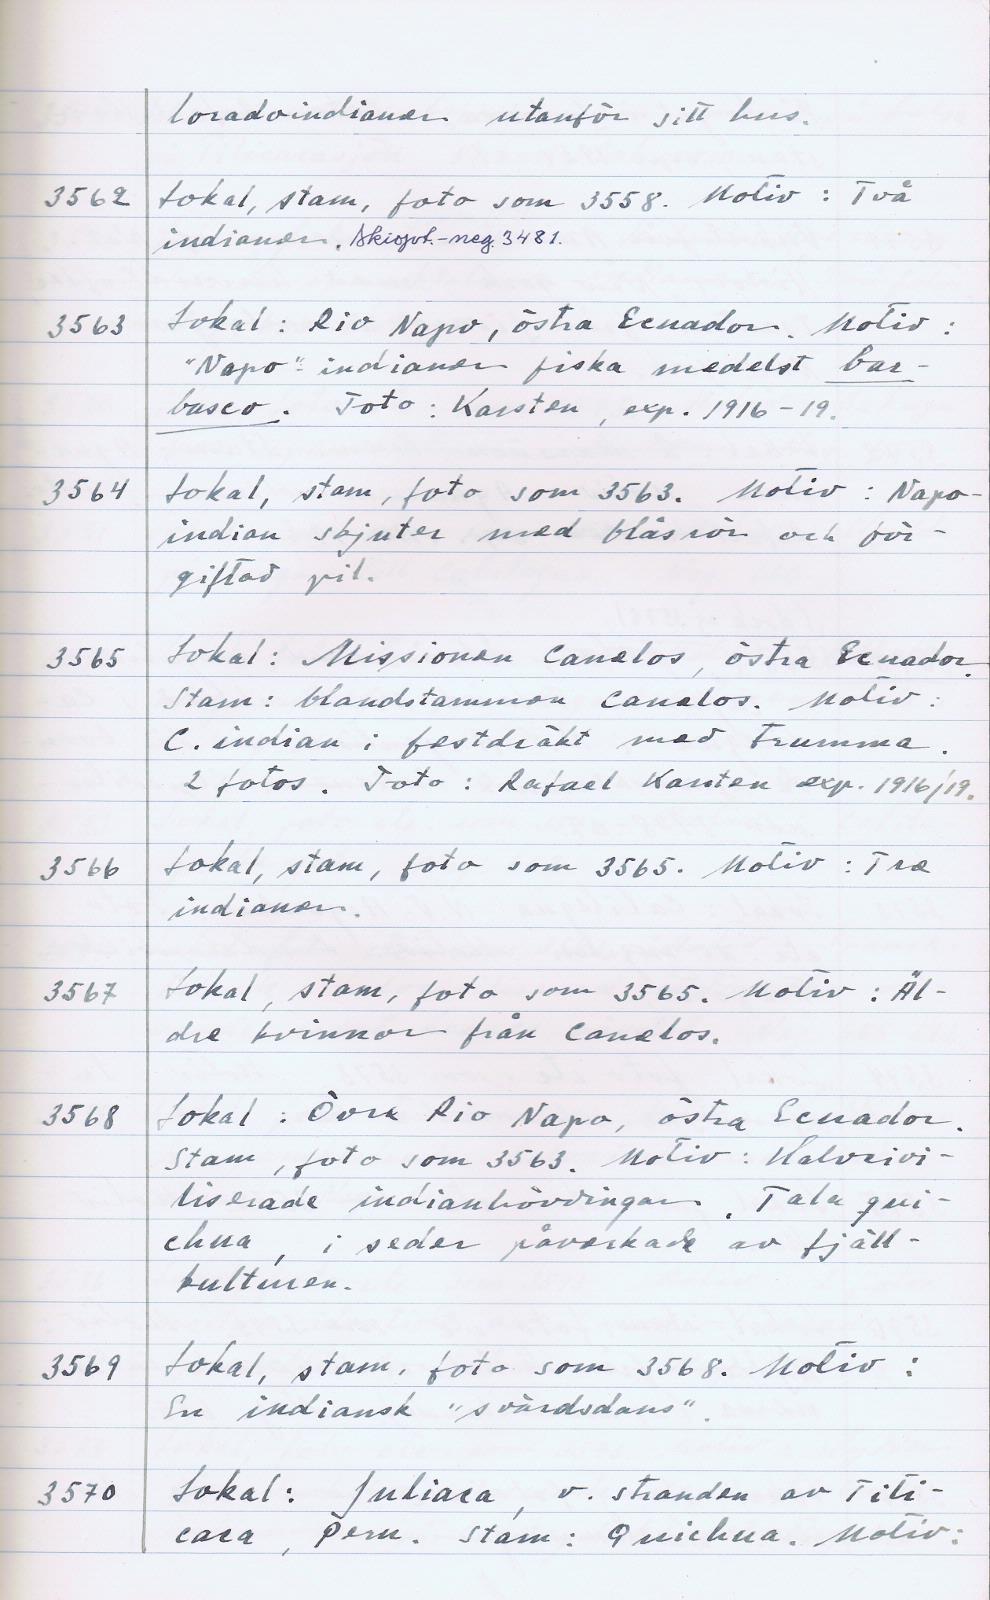 loradoindianer utanför sitt hus.
3562 Lokal, stam, foto som 3558. Motiv : Två
indianer. Skiopt.-neg. 3481.
3563 Lokal : Rio Napo, östra Ecuador. Motiv :
"Napo"-indianer fiska medelst bar-
basco. Foto : Karsten, exp. 1916-19.
3564 Lokal, stam, foto som 3563. Motiv : Napo-
indian skjuter med blåsrör och för-
giftad pil.
3565 Lokal : Missionen Canelos, östra Ecuador.
Stam : blandstammen Canelos. Motiv :
C. indian i festdräkt med trumma.
2 fotos. Foto : Rafael Karsten exp. 1916/19.
3566 Lokal, stam, foto som 3565. Motiv : Tre
indianer.
3567 Lokal, stam, foto som 3565. Motiv : Äl-
dre kvinnor från Canelos.
3568 Lokal : Övre Rio Napo, östra Ecuador.
Stam, foto som 3563. Motiv : Halvcivi-
liserade indianhövdingar. Tala qui-
chua, i seder påverkade av fjäll-
kulturen.
3569 Lokal, stam, foto som 3568. Motiv :
En indiansk "svärdsdans".
3570 Lokal : Juliaca, v. stranden av Titi-
caca, Peru. Stam : Quichua. Motiv :